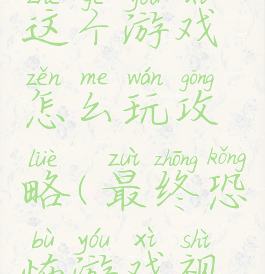 zhè gè yóu xì
这个游戏
zěn me wán gōng
怎么玩攻
lüè zuì zhōng kǒng
略(最终恐
bù yóu xì shì
怖游戏视